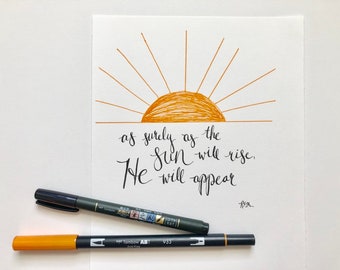 as surely as the
sun will rise,
He will appear
Tombow AB